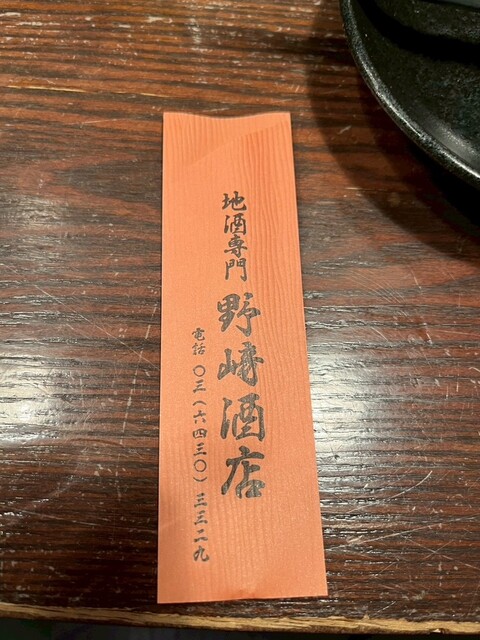 地酒専門 野崎酒店
電話 〇三(六四三〇)三三二九